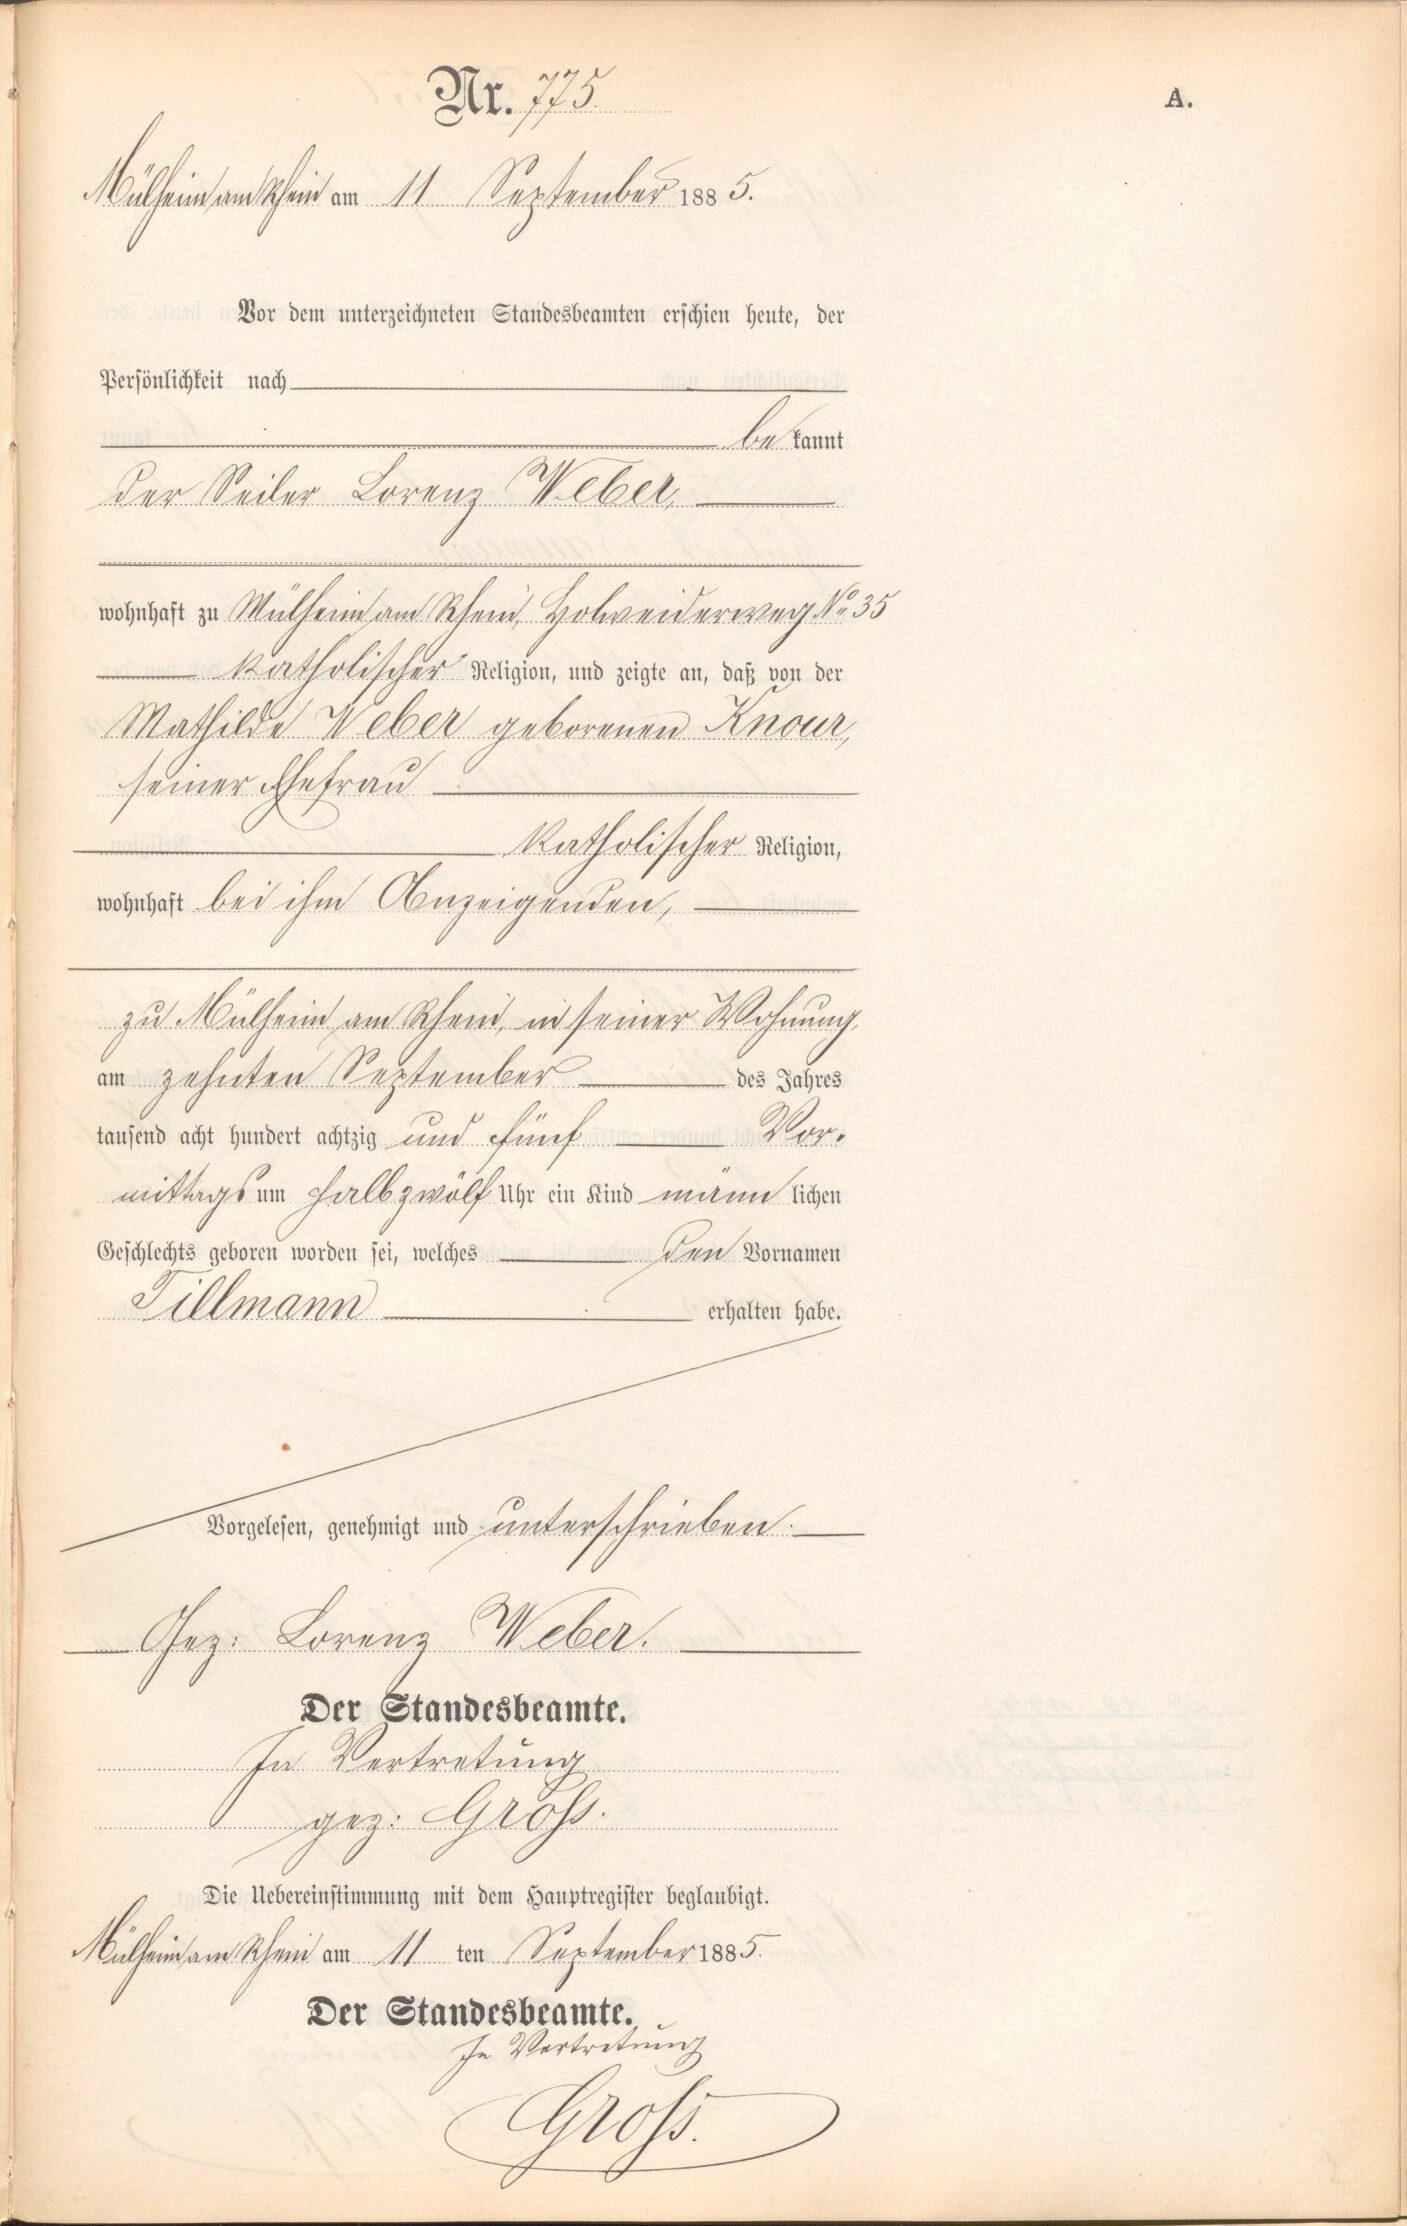 Nr. 775.
A.
Mülheim am Rhein am 11 September 1885.
Vor dem unterzeichneten Standesbeamten erschien heute, der
Persönlichkeit nach
bekannt
der Seiler Lorenz Weber,
wohnhaft zu Mülheim am Rhein, Holweiderweg No 35
katholischer Religion, und zeigte an, daß von der
Mathilde Weber geborenen Knour,
seiner Ehefrau
katholischer Religion,
wohnhaft bei ihm Anzeigenden,
zu Mülheim am Rhein, in seiner Wohnung
am zehnten September des Jahres
tausend acht hundert achtzig und fünf Vor-
mittags um halb zwölf Uhr ein Kind männlichen
Geschlechts geboren worden sei, welches den Vornamen
Tillmann erhalten habe.
Vorgelesen, genehmigt und unterschrieben.
Gez: Lorenz Weber.
Der Standesbeamte.
In Vertretung
gez: Groß.
Die Uebereinstimmung mit dem Hauptregister beglaubigt.
Mülheim am Rhein am 11 ten September 1885.
Der Standesbeamte.
In Vertretung
Groß.